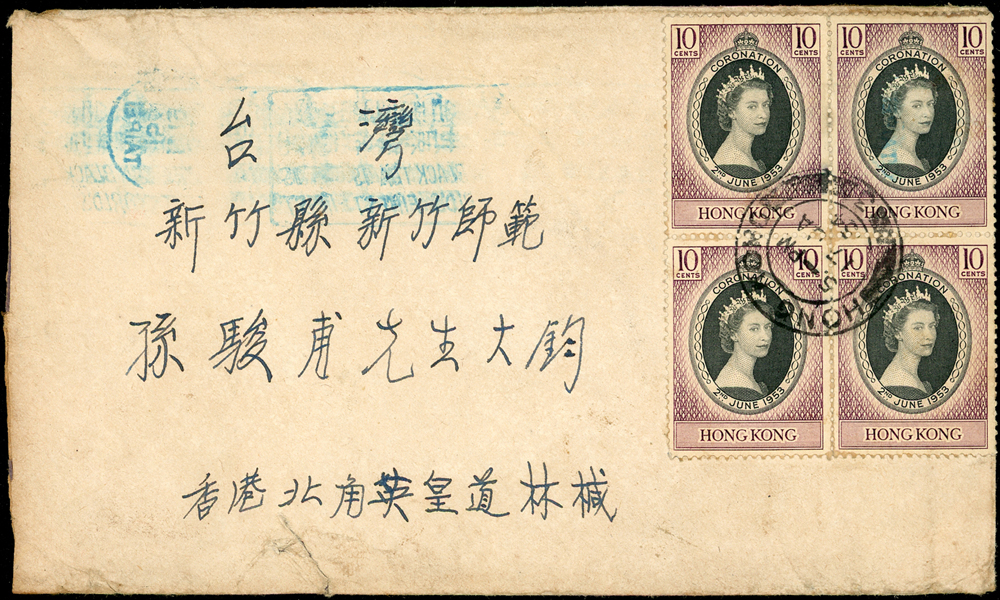 台灣
新竹縣新竹師範
孫駿甫先生大鈞
香港北角英皇道林棫
10 CENTS 10 CENTS
CORONATION
2ND JUNE 1953
HONG KONG
10 CENTS 10 CENTS
CORONATION
2ND JUNE 1953
HONG KONG
10 CENTS 10 CENTS
CORONATION
2ND JUNE 1953
HONG KONG
10 CENTS 10 CENTS
CORONATION
2ND JUNE 1953
HONG KONG
HONG KONG